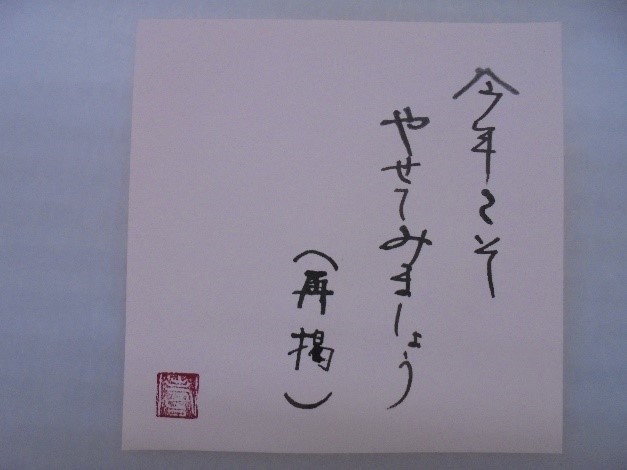 今年こそ
やせてみましょう
（再掲）